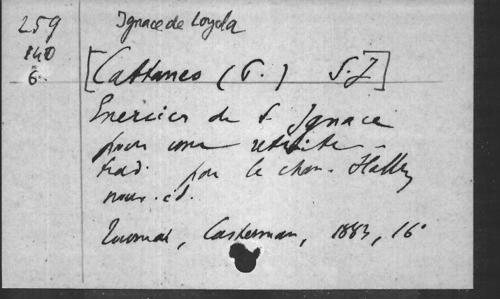 259
140
6
Ignace de Loyola
[Cattaneo (C.) S.J]
Exercices de S. Ignace
pour une retraite -
trad. par le chan. Hallez
nouv. éd.
Tournai, Casterman, 1883, 16°